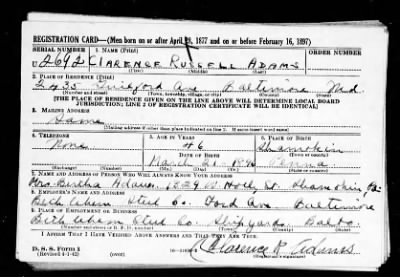 REGISTRATION CARD—(Men born on or after April 28, 1877 and on or before February 16, 1897)
SERIAL NUMBER 1. NAME (Print) ORDER NUMBER
CLARENCE RUSSELL ADAMS
(First) (Middle) (Last)
2. PLACE OF RESIDENCE (Print)
2435 Guilford Ave Baltimore Md.
(Number and street) (Town, township, village, or city) (County) (State)
[THE PLACE OF RESIDENCE GIVEN ON THE LINE ABOVE WILL DETERMINE LOCAL BOARD
JURISDICTION; LINE 2 OF REGISTRATION CERTIFICATE WILL BE IDENTICAL]
3. MAILING ADDRESS
Same
(Mailing address if other than place indicated on line 2. If same insert word same)
4. TELEPHONE 5. AGE IN YEARS 6. PLACE OF BIRTH
None 46 Shamokin
DATE OF BIRTH (Town or county)
March 21 Penna
(Mo.) (Day) (Yr.) (State or country)
7. NAME AND ADDRESS OF PERSON WHO WILL ALWAYS KNOW YOUR ADDRESS
Mrs. Adams, 1524 W. Holly St. Shamokin Pa.
8. EMPLOYER'S NAME AND ADDRESS
Bethlehem Steel Co. Baltimore
9. PLACE OF EMPLOYMENT OR BUSINESS
Bethlehem Steel Co. Shipyards Balto.
(Number and street or R. F. D. number) (Town) (County) (State)
I AFFIRM THAT I HAVE VERIFIED ABOVE ANSWERS AND THAT THEY ARE TRUE.
D. S. S. Form 1
(Revised 4-1-42) Clarence R. Adams